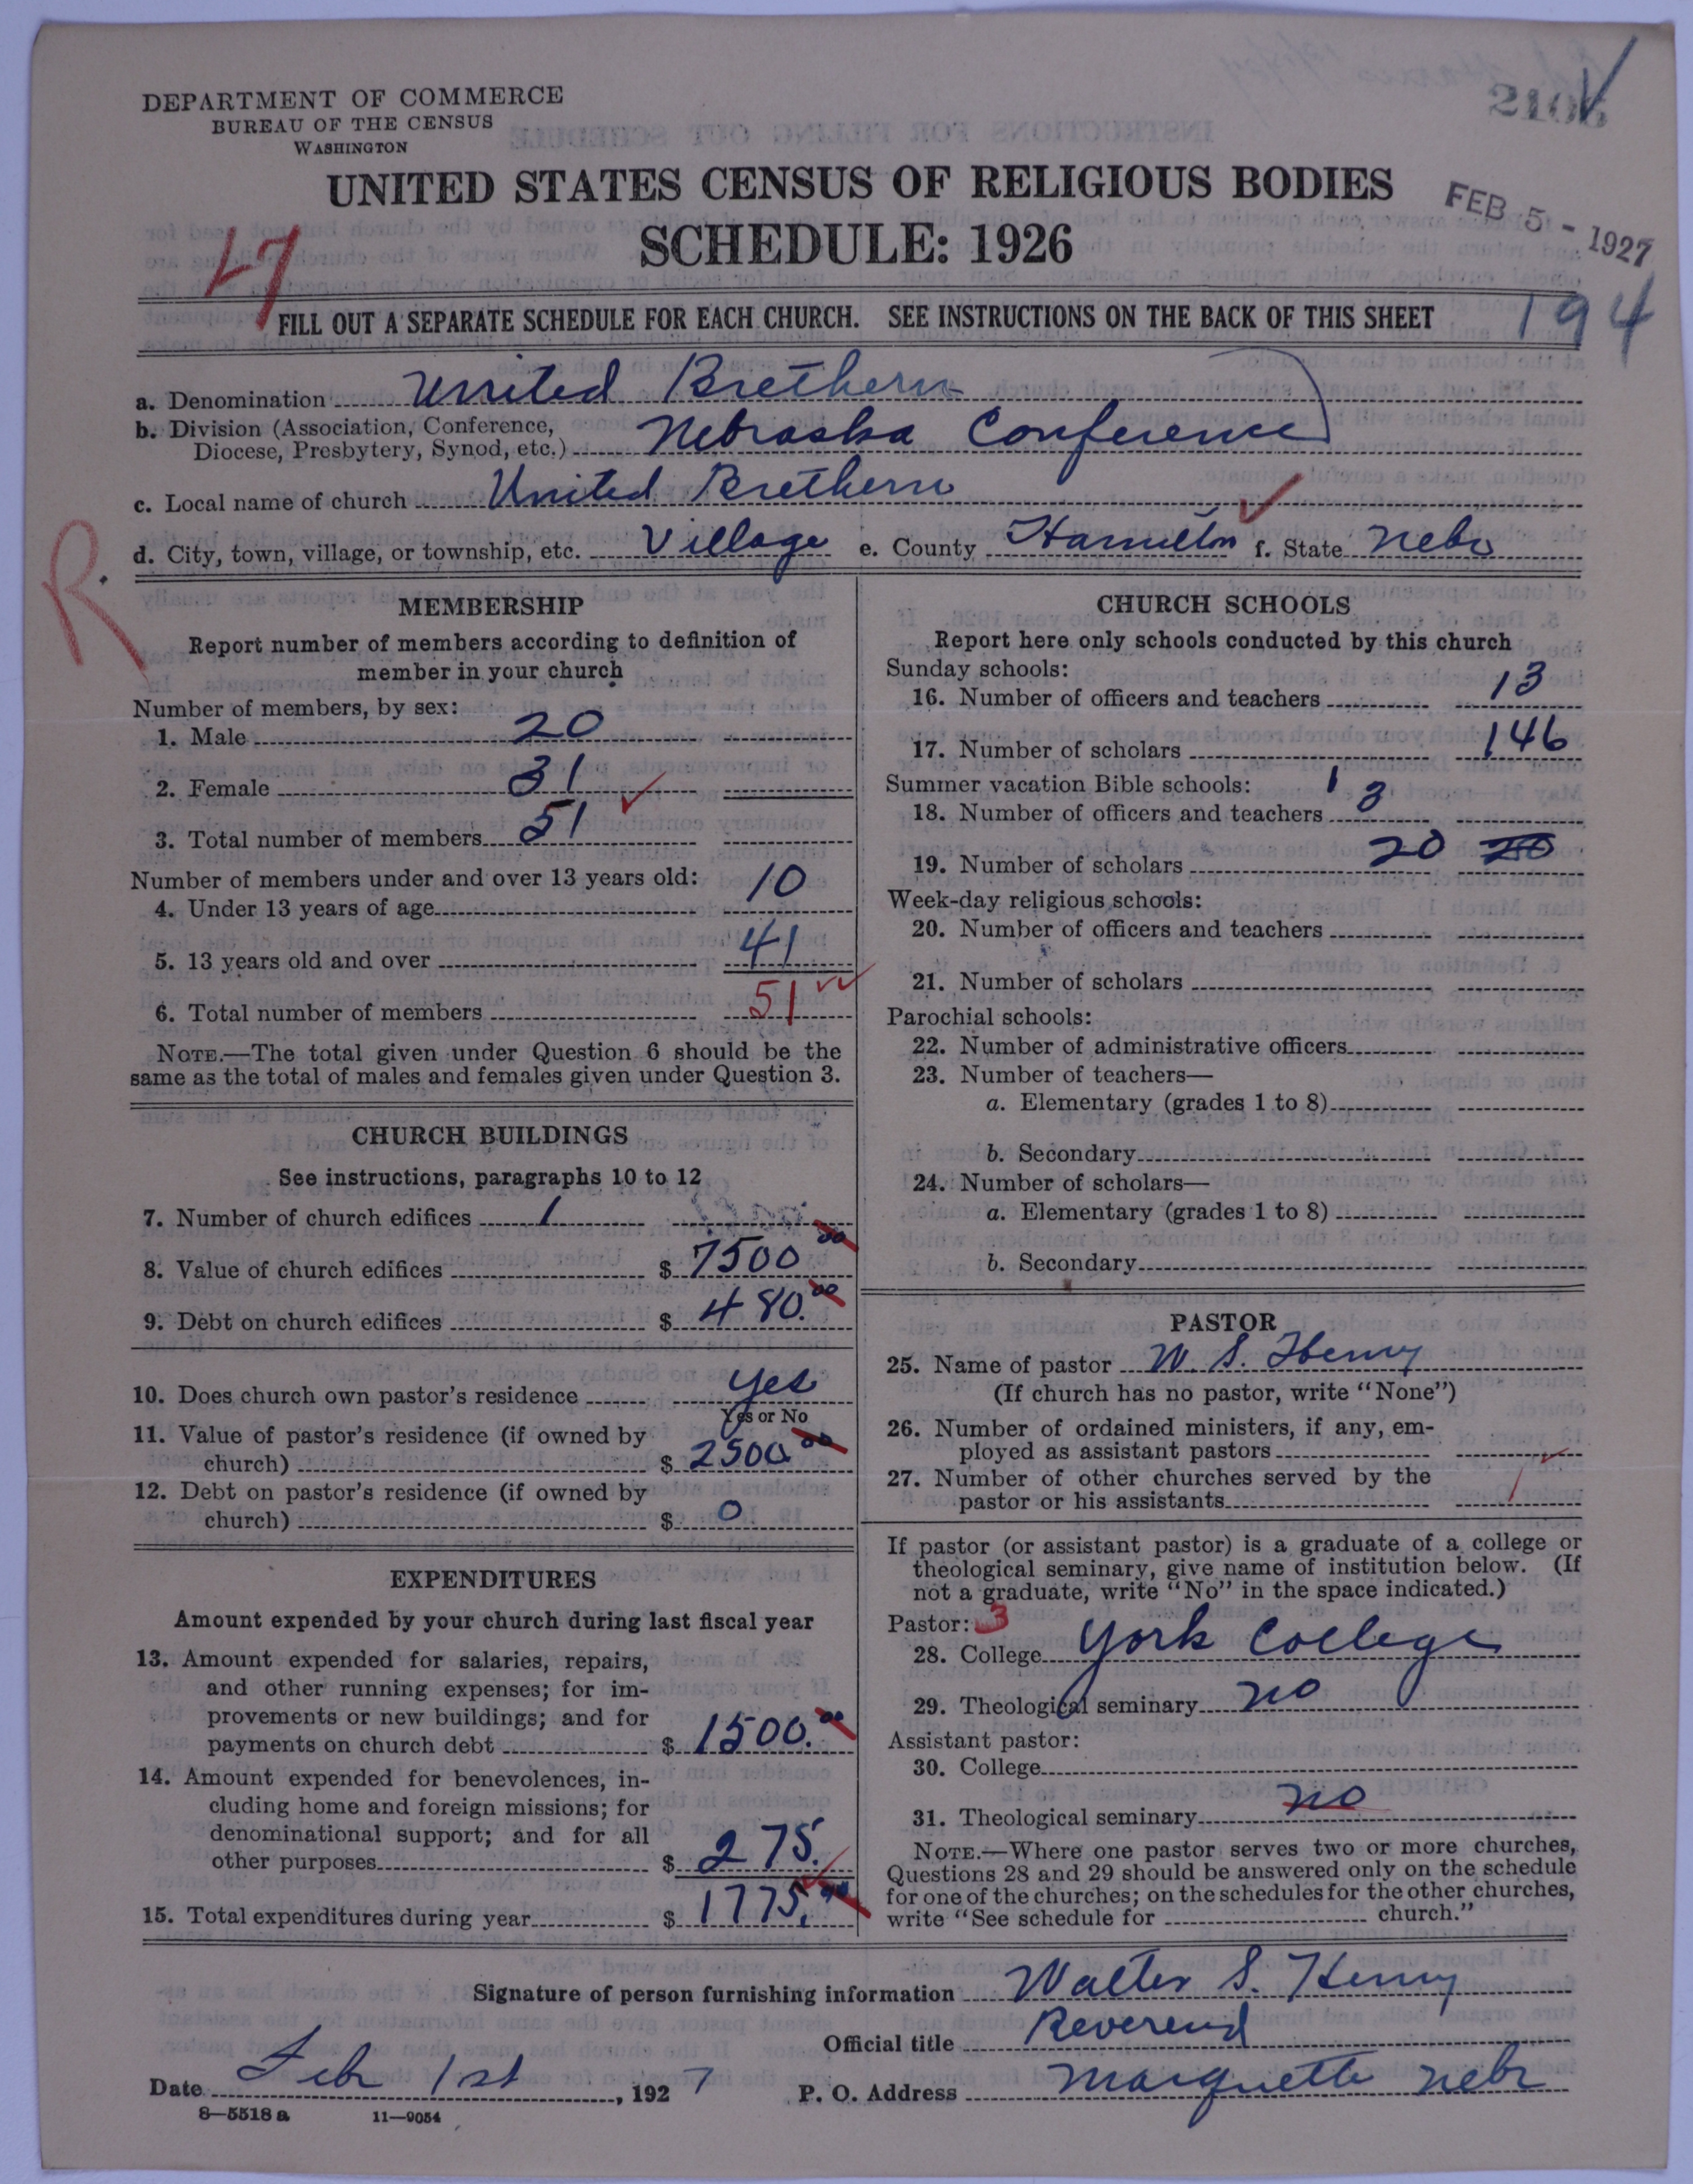 2106
DEPARTMENT OF COMMERCE
BUREAU OF THE CENSUS
WASHINGTON
UNITED STATES CENSUS OF RELIGIOUS BODIES
FEB 5 - 1927
SCHEDULE: 1926
FILL OUT A SEPARATE SCHEDULE FOR EACH CHURCH. SEE INSTRUCTIONS ON THE BACK OF THIS SHEET
194
a. Denomination United Brethern
b. Division (Association, Conference, Diocese, Presbytery, Synod, etc.) Nebraska Conference
c. Local name of church United Brethern
d. City, town, village, or township, etc. Village e. County Hamilton f. State Nebr
R
MEMBERSHIP
Report number of members according to definition of
member in your church
Number of members, by sex:
1. Male 20
2. Female 31
3. Total number of members 51
Number of members under and over 13 years old:
4. Under 13 years of age 10
5. 13 years old and over 41
6. Total number of members 51
NOTE.—The total given under Question 6 should be the
same as the total of males and females given under Question 3.
CHURCH BUILDINGS
See instructions, paragraphs 10 to 12
7. Number of church edifices 1
8. Value of church edifices $ 7500 00
9. Debt on church edifices $ 480.00
10. Does church own pastor's residence yes
Yes or No
11. Value of pastor's residence (if owned by
church) $ 2500 00
12. Debt on pastor's residence (if owned by
church) $ 0
EXPENDITURES
Amount expended by your church during last fiscal year
13. Amount expended for salaries, repairs,
and other running expenses; for im-
provements or new buildings; and for
payments on church debt $ 1500.00
14. Amount expended for benevolences, in-
cluding home and foreign missions; for
denominational support; and for all
other purposes $ 275.
15. Total expenditures during year $ 1775.00
CHURCH SCHOOLS
Report here only schools conducted by this church
Sunday schools:
16. Number of officers and teachers 13
17. Number of scholars 146
Summer vacation Bible schools: 1
18. Number of officers and teachers 3
19. Number of scholars 20 20
Week-day religious schools:
20. Number of officers and teachers
21. Number of scholars
Parochial schools:
22. Number of administrative officers
23. Number of teachers—
a. Elementary (grades 1 to 8)
b. Secondary
24. Number of scholars—
a. Elementary (grades 1 to 8)
b. Secondary
PASTOR
25. Name of pastor W. S. Henry
(If church has no pastor, write "None")
26. Number of ordained ministers, if any, em-
ployed as assistant pastors
27. Number of other churches served by the
pastor or his assistants
If pastor (or assistant pastor) is a graduate of a college or
theological seminary, give name of institution below. (If
not a graduate, write "No" in the space indicated.)
Pastor: 3
28. College York College
29. Theological seminary no
Assistant pastor:
30. College
31. Theological seminary no
NOTE.—Where one pastor serves two or more churches,
Questions 28 and 29 should be answered only on the schedule
for one of the churches; on the schedules for the other churches,
write "See schedule for church."
Signature of person furnishing information Walter S. Henry
Official title Reverend
Date Feb 1st, 1927 P. O. Address Marquette Nebr
8—5518 a 11—9054